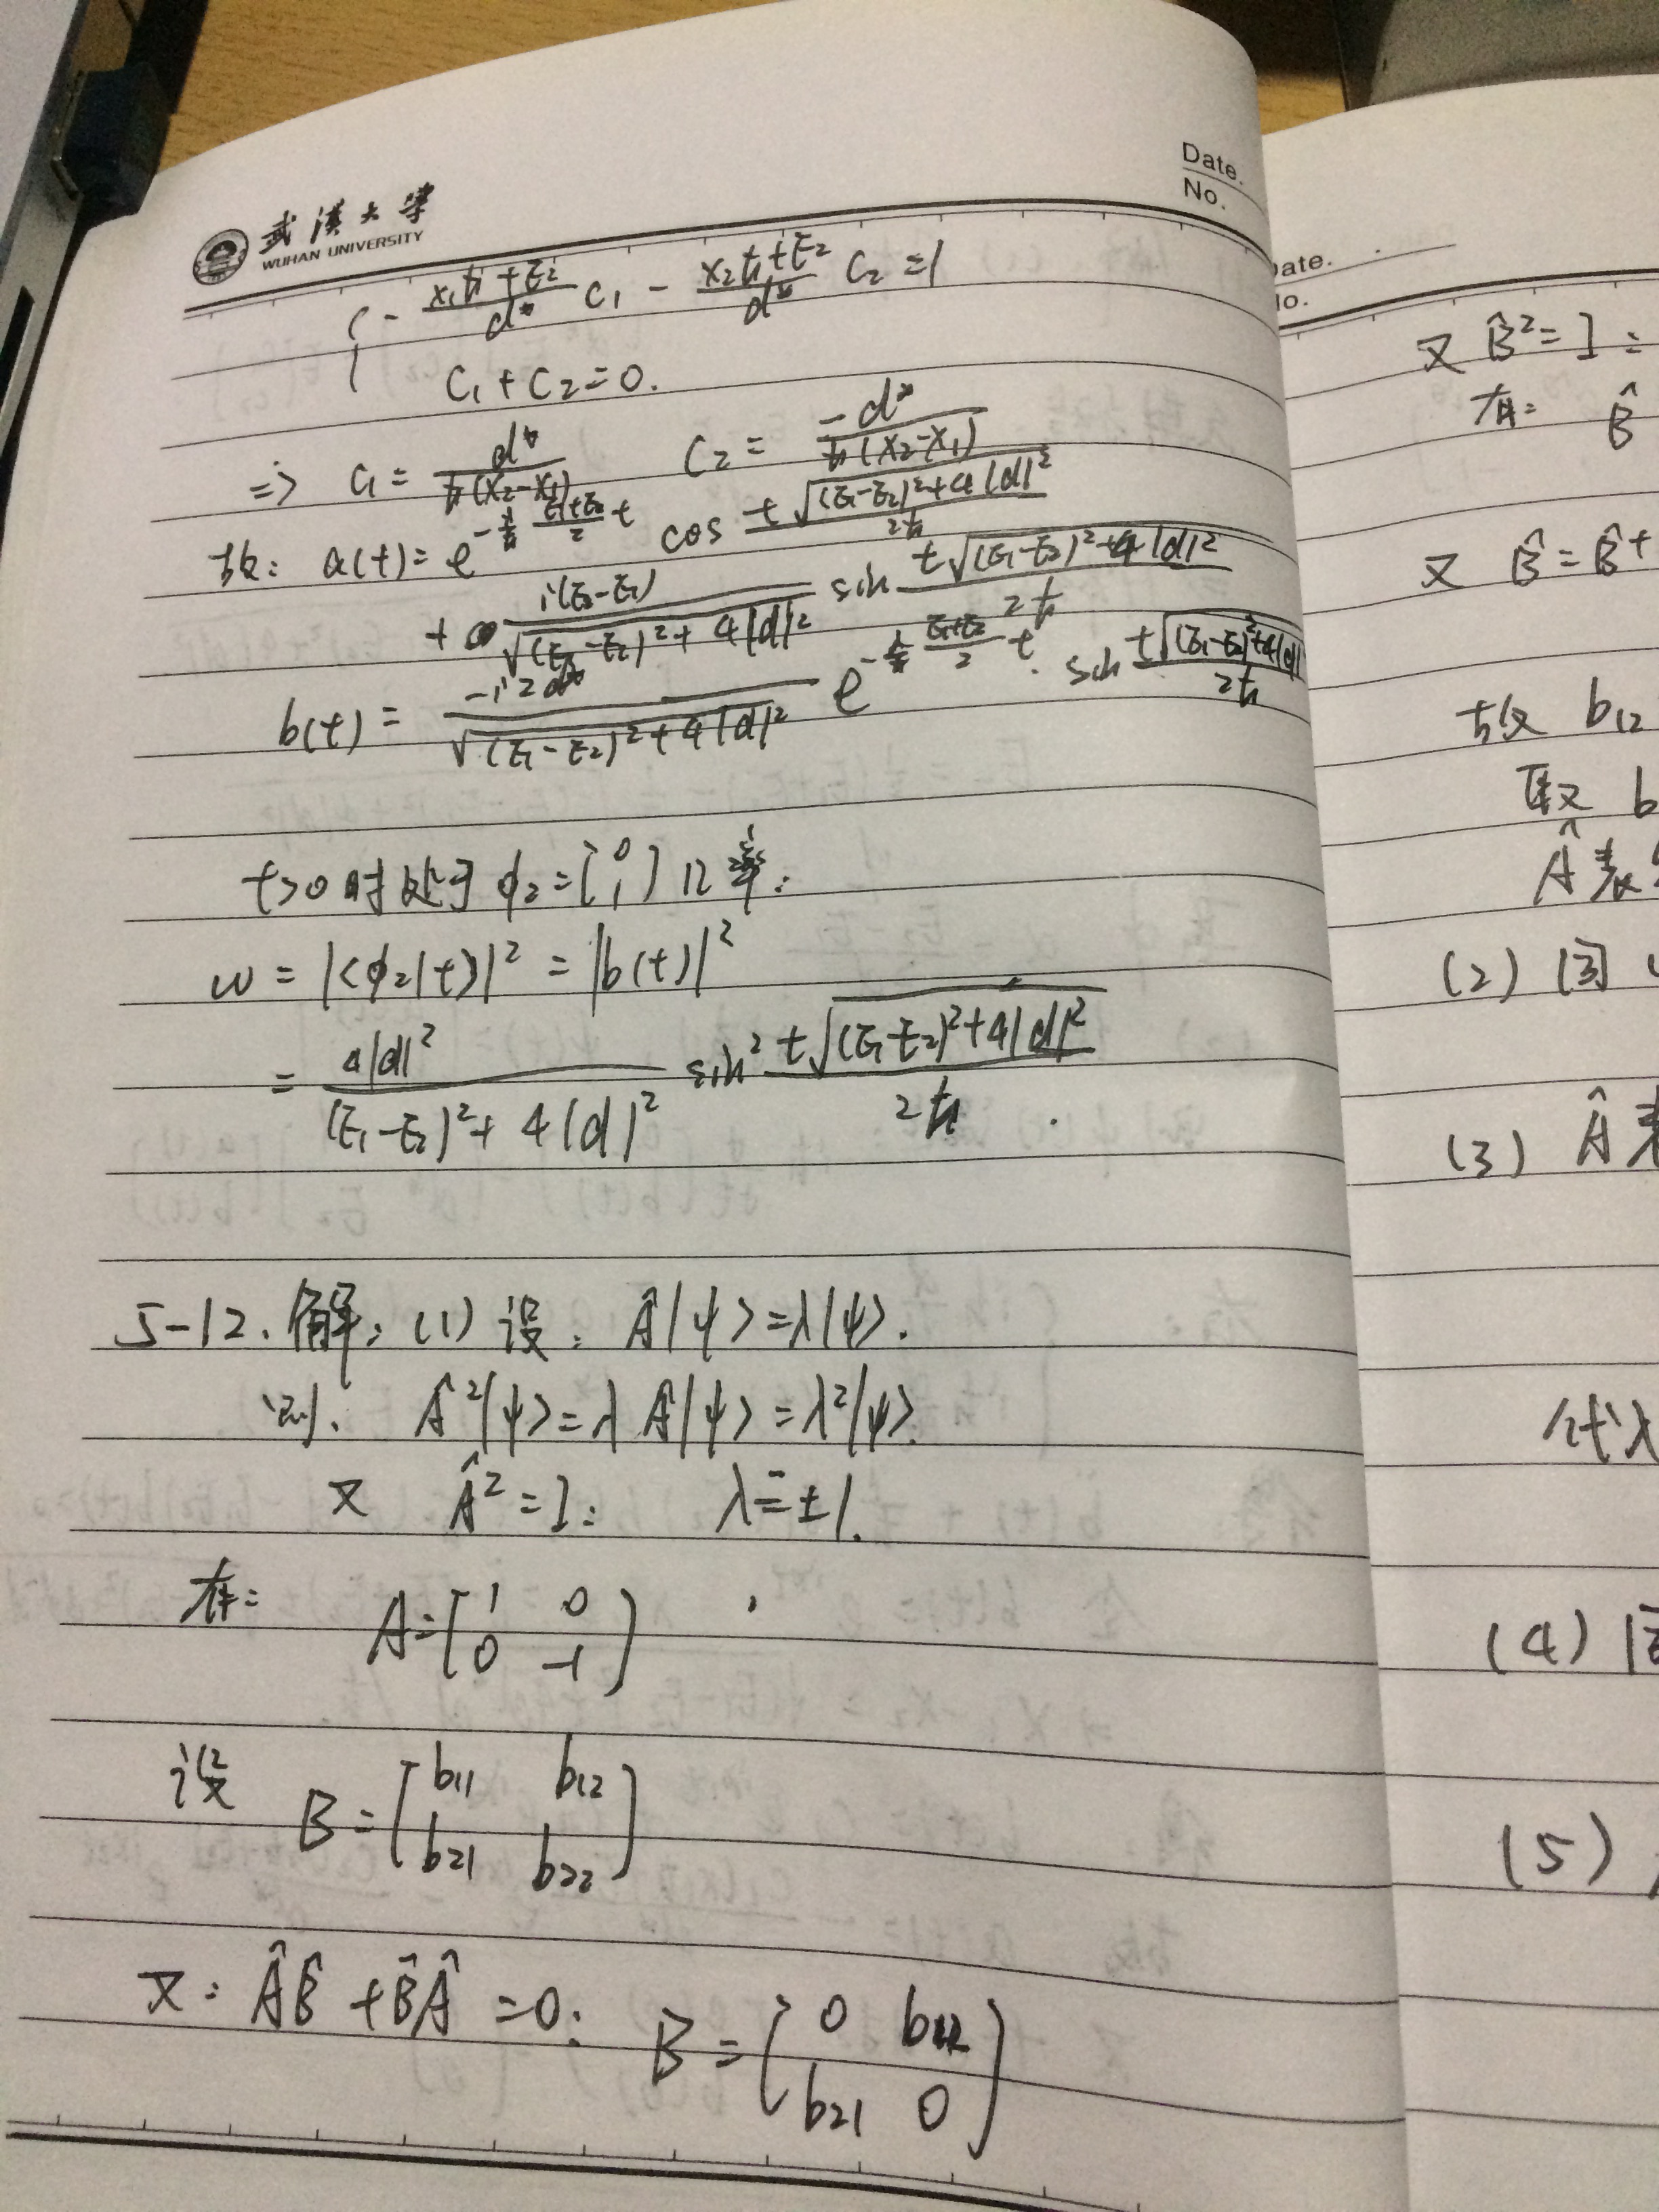 武汉大学
WUHAN UNIVERSITY
Date.
No.
{ - (x₁ħ+E₂)/d* C₁ - (x₂ħ+E₂)/d* C₂ = 1
C₁ + C₂ = 0.
⇒ C₁ = d*/(ħ(x₂-x₁)) C₂ = -d*/(ħ(x₂-x₁))
故: a(t) = e^(-(i/ħ) (E₁+E₂)/2 t) cos (t√((E₁-E₂)²+4|d|²))/(2ħ)
+ i(E₂-E₁)/√((E₁-E₂)²+4|d|²) sin (t√((E₁-E₂)²+4|d|²))/(2ħ)
b(t) = -i2d*/√((E₁-E₂)²+4|d|²) e^(-(i/ħ) (E₁+E₂)/2 t) · sin (t√((E₁-E₂)²+4|d|))/(2ħ)
t>0时处于 φ₂=[0 1] 几率:
w = |<φ₂|t>|² = |b(t)|²
= 4|d|²/((E₁-E₂)²+4|d|²) sin² (t√((E₁-E₂)²+4|d|²))/(2ħ) .
5-12. 解: (1) 设: Â|ψ> = λ|ψ>.
则. Â²|ψ> = λÂ|ψ> = λ²|ψ>.
又 Â² = I: λ = ±1.
有: A = [1 0
0 -1]
设 B = [b₁₁ b₁₂
b₂₁ b₂₂]
又: ÂB̂ + B̂Â = 0: B = [0 b₁₂
b₂₁ 0]
Date.
No.
又 B̂² = I :
有: B̂
又 B̂ = B̂⁺
故 b₁₂
取 b
Â表
(2) 同
(3) Â表
代入
(4) 同
(5)